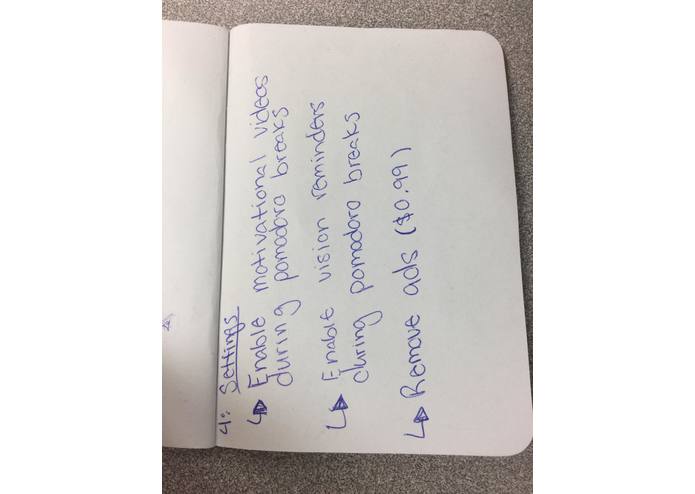 4: Settings
↳ Enable motivational videos
during pomodoro breaks
↳ Enable vision reminders
during pomodoro breaks
↳ Remove ads ($0.99)